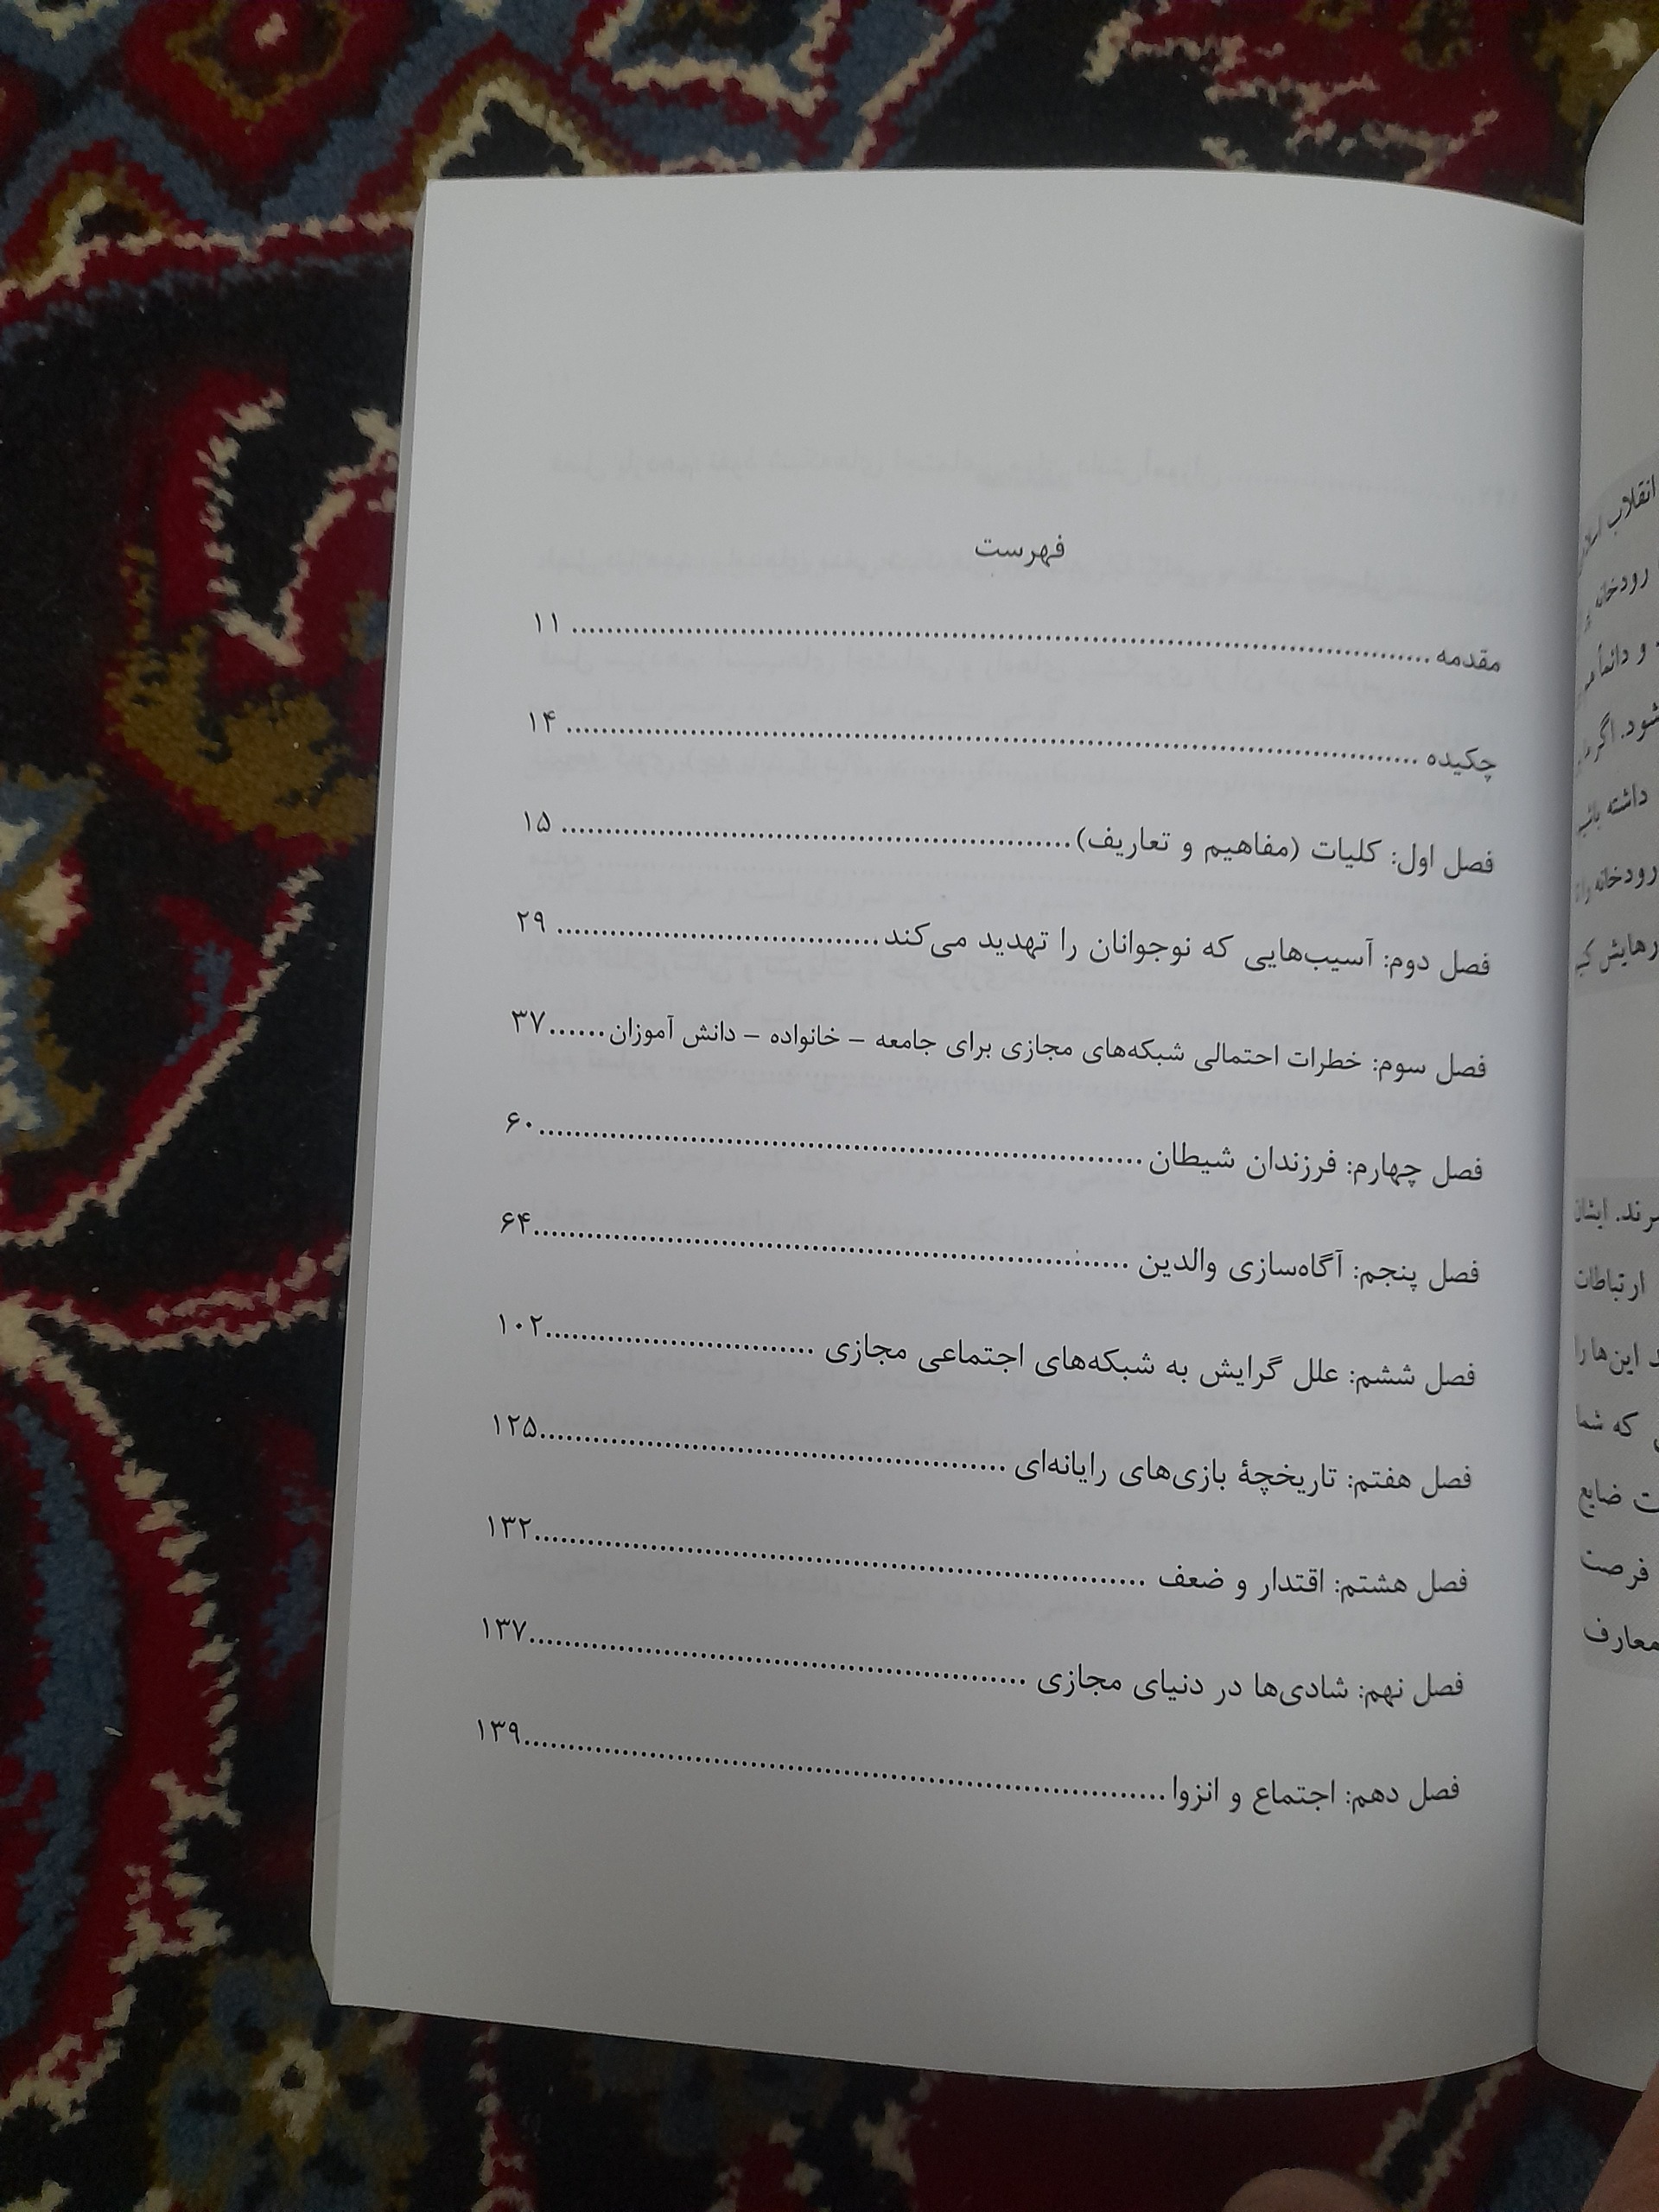 فهرست
مقدمه ........................................ ۱۱
چکیده ........................................ ۱۴
فصل اول: کلیات (مفاهیم و تعاریف) ........................................ ۱۵
فصل دوم: آسیب‌هایی که نوجوانان را تهدید می‌کند ........................................ ۲۹
فصل سوم: خطرات احتمالی شبکه‌های مجازی برای جامعه – خانواده – دانش آموزان ...... ۳۷
فصل چهارم: فرزندان شیطان ........................................ ۶۰
فصل پنجم: آگاه‌سازی والدین ........................................ ۶۴
فصل ششم: علل گرایش به شبکه‌های اجتماعی مجازی ........................................ ۱۰۲
فصل هفتم: تاریخچهٔ بازی‌های رایانه‌ای ........................................ ۱۲۵
فصل هشتم: اقتدار و ضعف ........................................ ۱۳۲
فصل نهم: شادی‌ها در دنیای مجازی ........................................ ۱۳۷
فصل دهم: اجتماع و انزوا ........................................ ۱۳۹
انقلاب
رودخانه
و دائماً
شود. اگر
داشته
رودخانه را
رهایش
ایشان
ارتباطات
این‌ها را
که شما
ضایع
فرصت
معارف